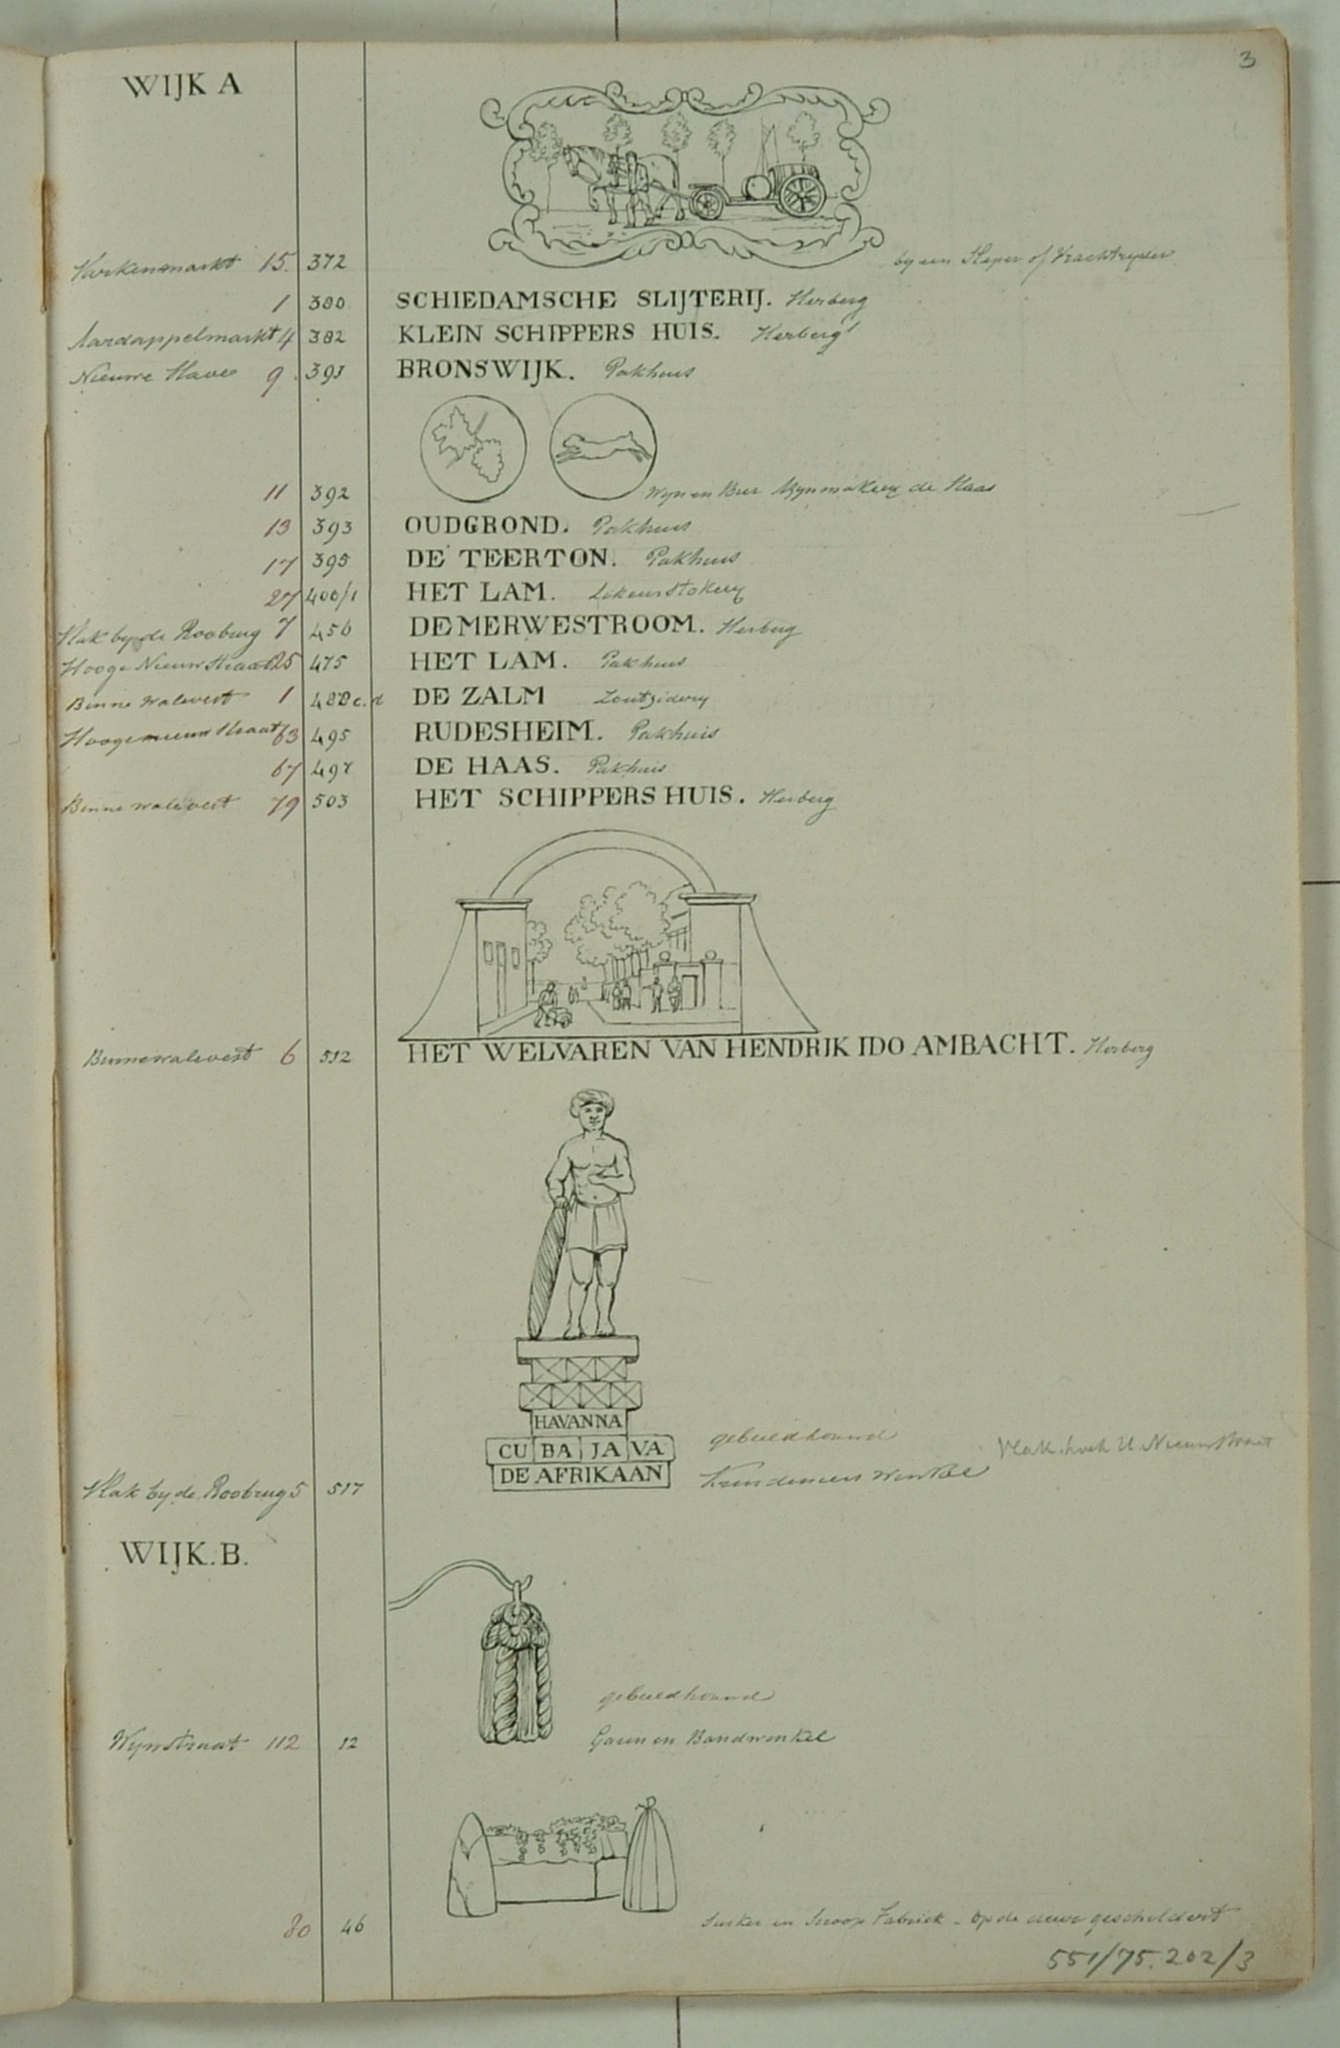 3
WIJK A
Varkenmarkt 15. 372 by een Sleper of Vrachtryder
1 380 SCHIEDAMSCHE SLIJTERIJ. Herberg
Aardappelmarkt 4 382 KLEIN SCHIPPERS HUIS. Herberg
Nieuwe Have 9 391 BRONSWIJK. Pakhuis
11 392 Wyn en Bier Azynmakery de Haas
13 393 OUDGROND. Pakhuis
17 395 DE TEERTON. Pakhuis
27 400/1 HET LAM. Likeurstokery
Vlak by de Roobrug 7 456 DE MERWESTROOM. Herberg
Hooge Nieuwstraat 25 475 HET LAM. Pakhuis
Binne walevest 1 DE ZALM Zoutziedery
Hooge nieuwstraat 63 495 RUDESHEIM. Pakhuis
67 497 DE HAAS. Pakhuis
Binne walevest 79 503 HET SCHIPPERS HUIS. Herberg
Binnewalevest 6 512 HET WELVAREN VAN HENDRIK IDO AMBACHT. Herberg
HAVANNA
CU BA JA VA
DE AFRIKAAN
gebeeldhouwd
Vlak. hoek H. Nieuwstraat
Kruideniers Winkel
Vlak by de Roobrug 5 517
WIJK. B.
gebeeldhouwd
Wynstraat 112 12 Garen en Bandwinkel
80 46 Suiker en Siroop Fabriek - op de deur geschildert
551/75.202/3